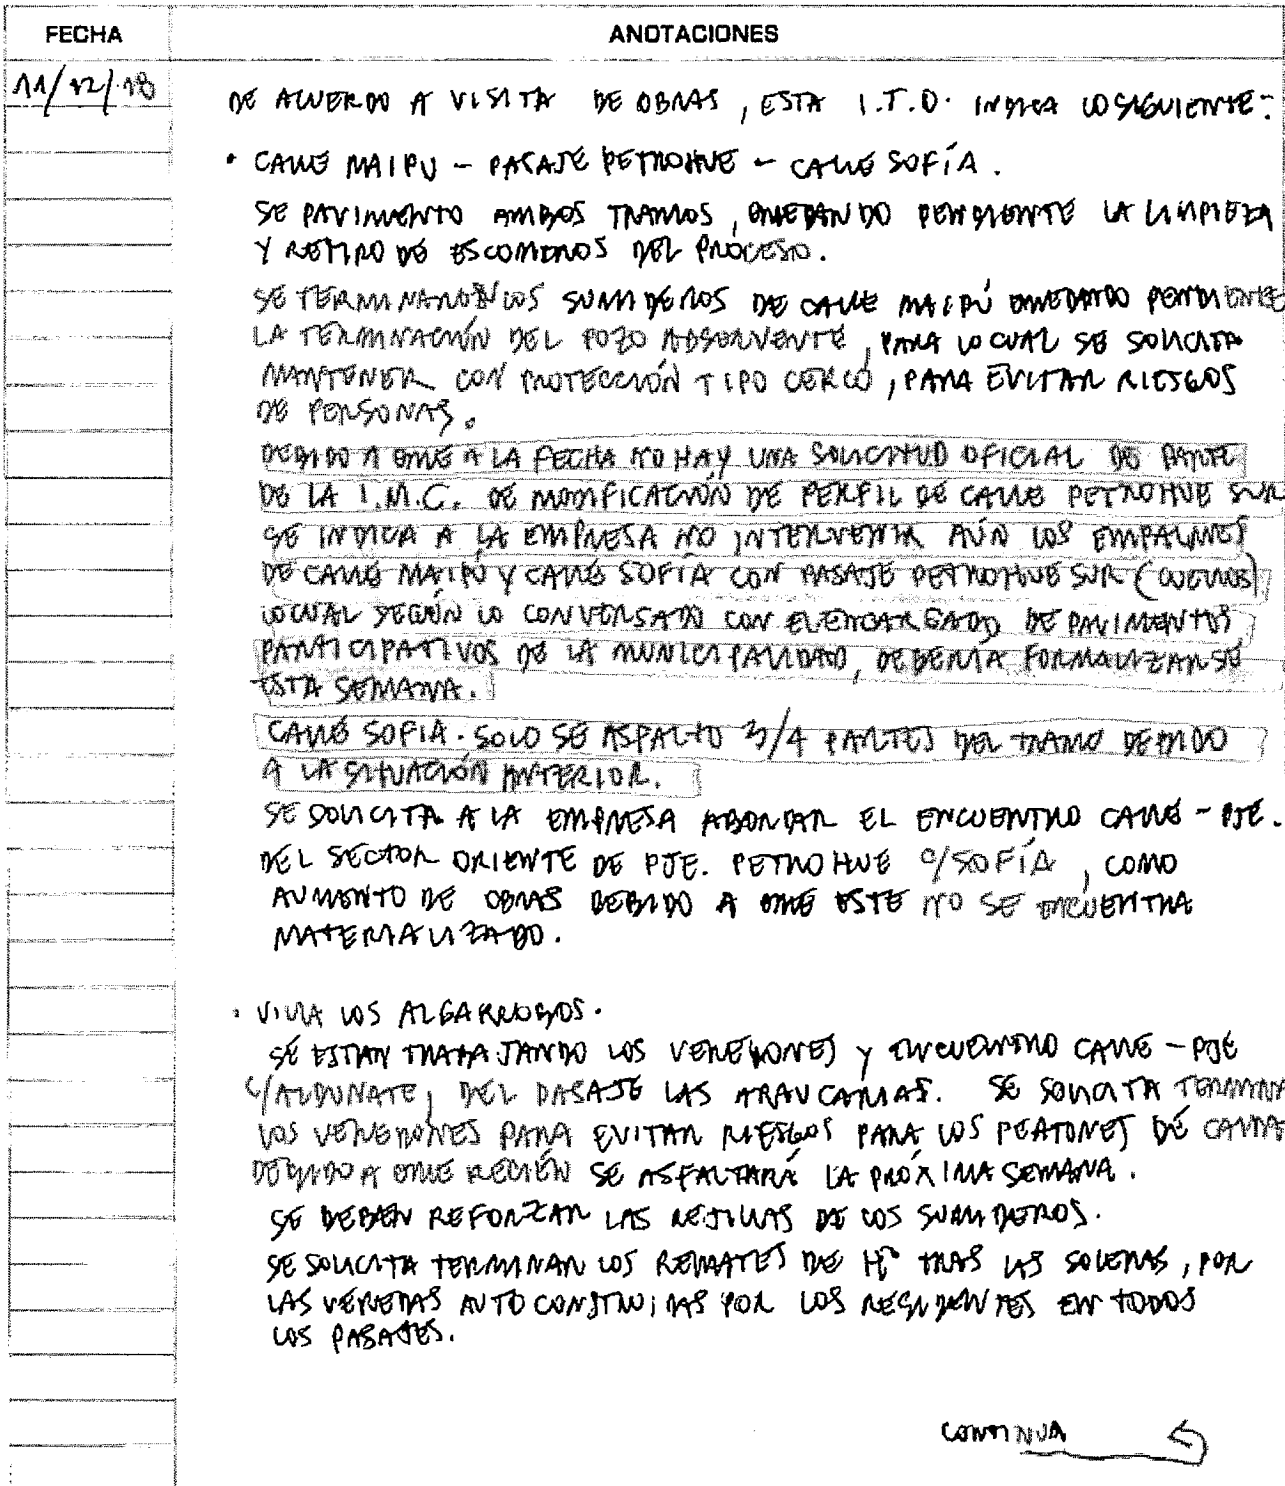 FECHA ANOTACIONES
11/12/18
DE ACUERDO A VISITA DE OBRAS, ESTA I.T.O. INDICA LO SIGUIENTE:
• CALLE MAIPU - PASAJE PETROHUE - CALLE SOFÍA.
SE PAVIMENTO AMBOS TRAMOS, QUEDANDO PENDIENTE LA LIMPIEZA
Y RETIRO DE ESCOMBROS DEL PROCESO.
SE TERMINARON LOS SUMIDEROS DE CALLE MAIPÚ QUEDANDO PENDIENTE
LA TERMINACIÓN DEL POZO ABSORVENTE, PARA LO CUAL SE SOLICITA
MANTENER CON PROTECCIÓN TIPO CERCO, PARA EVITAR RIESGOS
DE PERSONAS.
DEBIDO A QUE A LA FECHA NO HAY UNA SOLICITUD OFICIAL DE PARTE
DE LA I.M.C. DE MODIFICACIÓN DE PERFIL DE CALLE PETROHUE SUR
SE INDICA A LA EMPRESA NO INTERVENIR AÚN LOS EMPALMES
DE CALLE MAIPÚ Y CALLE SOFÍA CON PASAJE PETROHUE SUR (CUELLOS)
LO CUAL SEGÚN LO CONVERSADO CON EL ENCARGADO DE PAVIMENTOS
PARTICIPATIVOS DE LA MUNICIPALIDAD, DEBERIA FORMALIZARSE
ESTA SEMANA.
CALLE SOFIA. SOLO SE ASFALTO 3/4 PARTES DEL TRAMO DEBIDO
A LA SITUACIÓN ANTERIOR.
SE SOLICITA A LA EMPRESA ABORDAR EL ENCUENTRO CALLE - PJE.
DEL SECTOR ORIENTE DE PJE. PETROHUE C/SOFÍA, COMO
AUMENTO DE OBRAS DEBIDO A QUE ESTE NO SE ENCUENTRA
MATERIALIZADO.
• VILLA LOS ALGARROBOS.
SE ESTAN TRABAJANDO LOS VEREDONES Y ENCUENTRO CALLE - PJE
C/ALDUNATE, DEL PASAJE LAS ARAUCARIAS. SE SOLICITA TERMINAR
LOS VEREDONES PARA EVITAR RIESGOS PARA LOS PEATONES DE CAIDA
DEBIDO A QUE RECIÉN SE ASFALTARÁ LA PRÓXIMA SEMANA.
SE DEBEN REFORZAR LAS REJILLAS DE LOS SUMIDEROS.
SE SOLICITA TERMINAR LOS REMATES DE Hº TRAS LAS SOLERAS, POR
LAS VEREDAS AUTOCONSTRUIDAS POR LOS RESIDENTES EN TODOS
LOS PASAJES.
CONTINUA